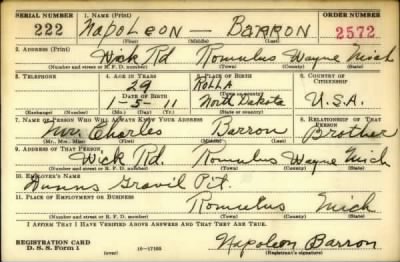 SERIAL NUMBER 1. NAME (Print) ORDER NUMBER
222 Napoleon — Barron 2572
(First) (Middle) (Last)
2. ADDRESS (Print)
Wick Rd Romulus Wayne Mich
(Number and street or R. F. D. number) (Town) (County) (State)
3. TELEPHONE 4. AGE IN YEARS 5. PLACE OF BIRTH 6. COUNTRY OF CITIZENSHIP
29 Rolla
DATE OF BIRTH (Town or county)
1-5-11 North Dakota U.S.A.
(Exchange) (Number) (Mo.) (Day) (Yr.) (State or country)
7. NAME OF PERSON WHO WILL ALWAYS KNOW YOUR ADDRESS 8. RELATIONSHIP OF THAT PERSON
Mr. Charles Barron Brother
(Mr., Mrs., Miss) (First) (Middle) (Last)
9. ADDRESS OF THAT PERSON
Wick Rd. Romulus Wayne Mich
(Number and street or R. F. D. number) (Town) (County) (State)
10. EMPLOYER'S NAME
Dunns Gravil Pit.
11. PLACE OF EMPLOYMENT OR BUSINESS
Romulus Mich
(Number and street or R. F. D. number) (Town) (County) (State)
I AFFIRM THAT I HAVE VERIFIED ABOVE ANSWERS AND THAT THEY ARE TRUE.
REGISTRATION CARD
D. S. S. Form 1 (over) 16-17105 Napoleon Barron
(Registrant's signature)